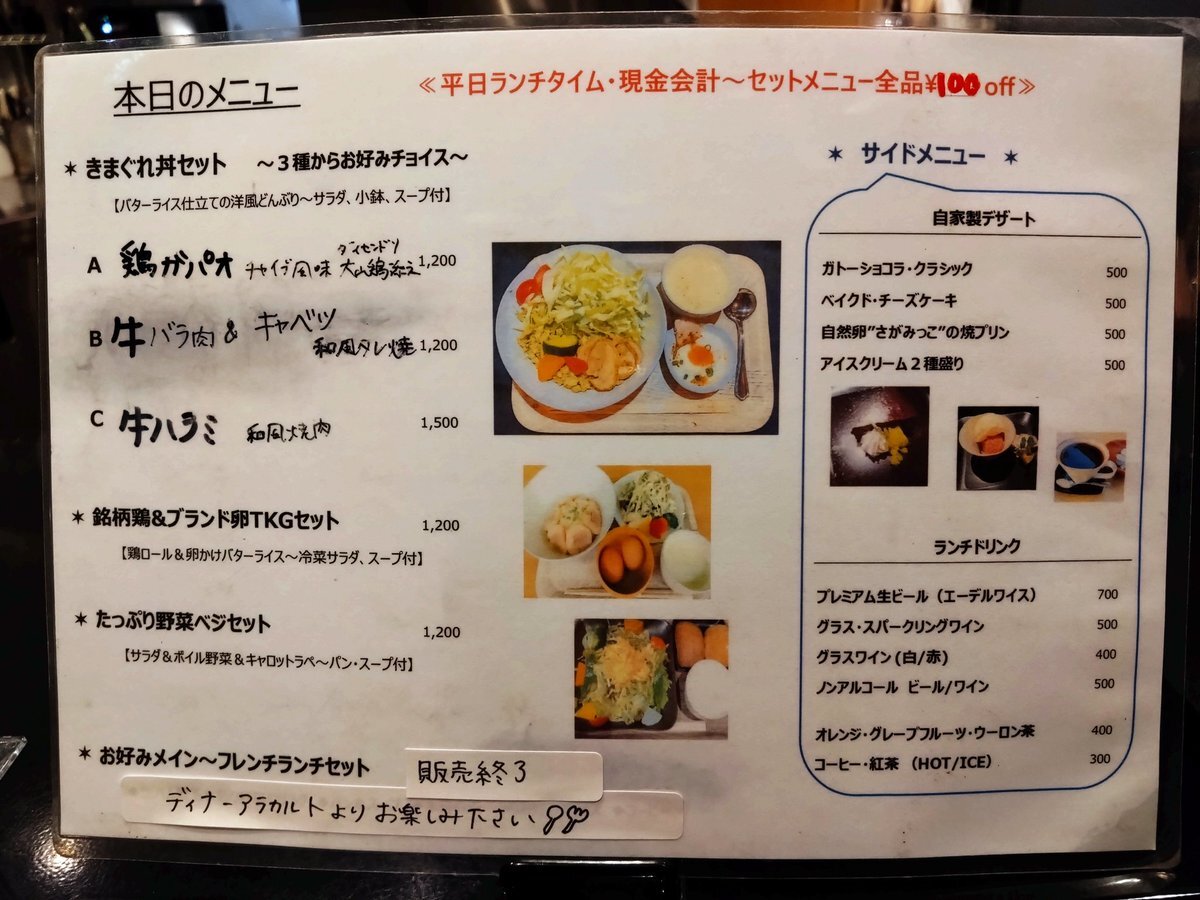 本日のメニュー
≪平日ランチタイム・現金会計～セットメニュー全品¥100off≫
＊きまぐれ丼セット ～３種からお好みチョイス～
【バターライス仕立ての洋風どんぶり～サラダ、小鉢、スープ付】
A 鶏ガパオ チャイブ風味 大山鶏添え 1,200
ダイセンドリ
B 牛バラ肉 & キャベツ
和風タレ焼 1,200
C 牛ハラミ 和風焼肉 1,500
＊銘柄鶏&ブランド卵TKGセット 1,200
【鶏ロール＆卵かけバターライス～冷菜サラダ、スープ付】
＊たっぷり野菜ベジセット 1,200
【サラダ＆ボイル野菜＆キャロットラペ～パン・スープ付】
＊お好みメイン～フレンチランチセット 販売終了
ディナーアラカルトよりお楽しみ下さい
＊ サイドメニュー ＊
自家製デザート
ガトーショコラ・クラシック 500
ベイクド・チーズケーキ 500
自然卵”さがみっこ”の焼プリン 500
アイスクリーム２種盛り 500
ランチドリンク
プレミアム生ビール（エーデルワイス） 700
グラス・スパークリングワイン 500
グラスワイン(白/赤) 400
ノンアルコール ビール/ワイン 500
オレンジ・グレープフルーツ・ウーロン茶 400
コーヒー・紅茶 （HOT/ICE） 300